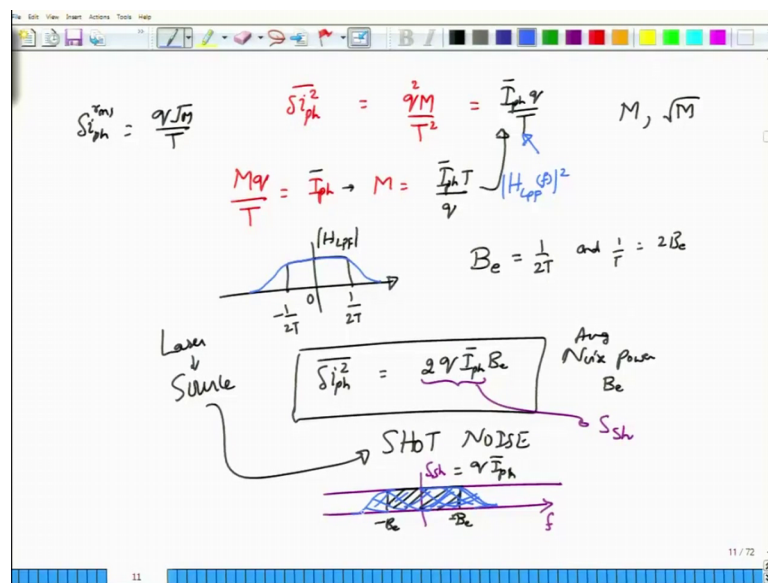 File Edit View Insert Actions Tools Help
δi_ph^rms = q√M / T
\overline{δi_ph^2} = q^2 M / T^2 = \bar{I}_ph q / T
M, √M
Mq / T = \bar{I}_ph → M = \bar{I}_ph T / q
|H_LPF(f)|^2
|H_LPF|
-1/2T 0 1/2T
B_e = 1/2T and 1/T = 2B_e
Laser
↓
Source
\overline{δi_ph^2} = 2q\bar{I}_ph B_e
Avg
Noise power
B_e
S_sh
SHOT NOISE
S_sh = q\bar{I}_ph
-B_e B_e f
11 / 72
11